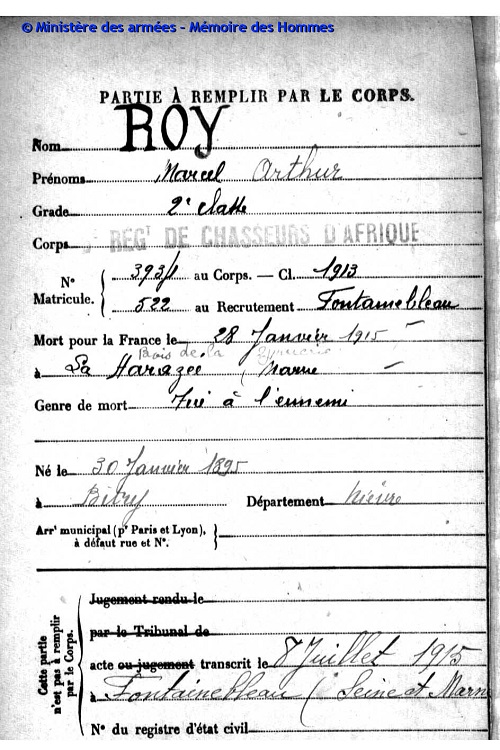 © Ministère des armées - Mémoire des Hommes
PARTIE À REMPLIR PAR LE CORPS.
Nom ROY
Prénoms Marcel Arthur
Grade 2e classe
Corps REGT DE CHASSEURS D'AFRIQUE
N° Matricule. { 3931 au Corps. — Cl. 1913
522 au Recrutement Fontainebleau
Mort pour la France le 28 Janvier 1915
Bois de la
à La Harazée (Marne
Genre de mort Tué à l'ennemi
Né le 30 Janvier 1895
à Bitry Département Nièvre
Arrt municipal (pr Paris et Lyon), à défaut rue et N°. }
Cette partie n'est pas à remplir par le Corps.
Jugement rendu le
par le Tribunal de
acte ou jugement transcrit le 8 Juillet 1915
à Fontainebleau (Seine et Marne
N° du registre d'état civil